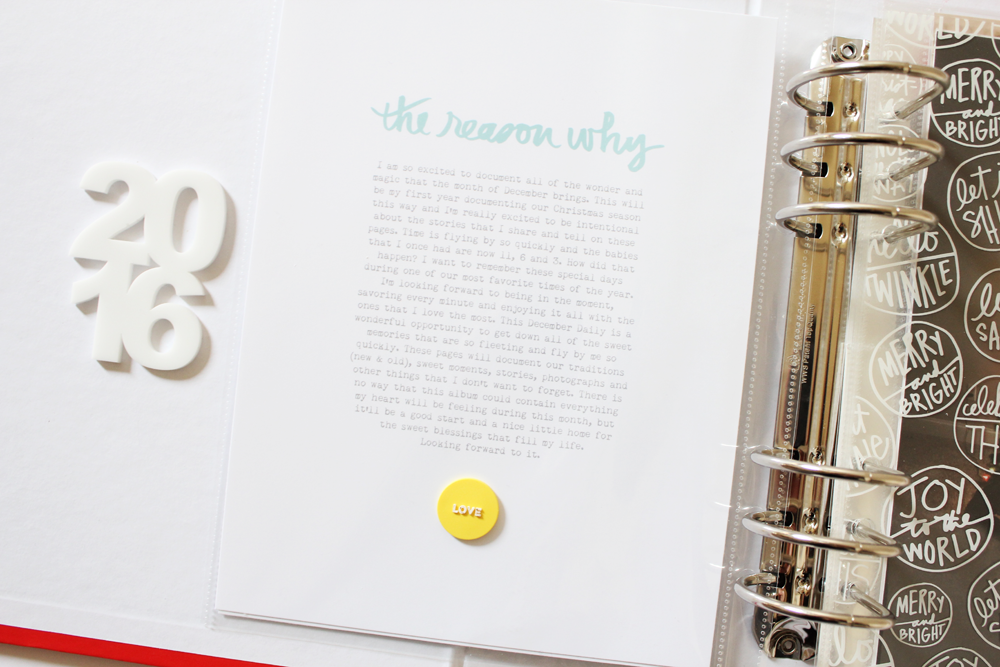 20
16
the reason why
I am so excited to document all of the wonder and
magic that the month of December brings. This will
be my first year documenting our Christmas season
this way and I'm really excited to be intentional
about the stories that I share and tell on these
pages. Time is flying by so quickly and the babies
that I once had are now 11, 6 and 3. How did that
happen? I want to remember these special days
during one of our most favorite times of the year.
I'm looking forward to being in the moment,
savoring every minute and enjoying it all with the
ones that I love the most. This December Daily is a
wonderful opportunity to get down all of the sweet
memories that are so fleeting and fly by me so
quickly. These pages will document our traditions
(new & old), sweet moments, stories, photographs and
other things that I don't want to forget. There is
no way that this album could contain everything
my heart will be feeling during this month, but
it'll be a good start and a nice little home for
the sweet blessings that fill my life.
Looking forward to it.
LOVE
WORLD
MERRY
and
BRIGHT
let
TWINKLE
MERRY
and
BRIGHT
JOY
to the
WORLD
MERRY
and
BRIGHT